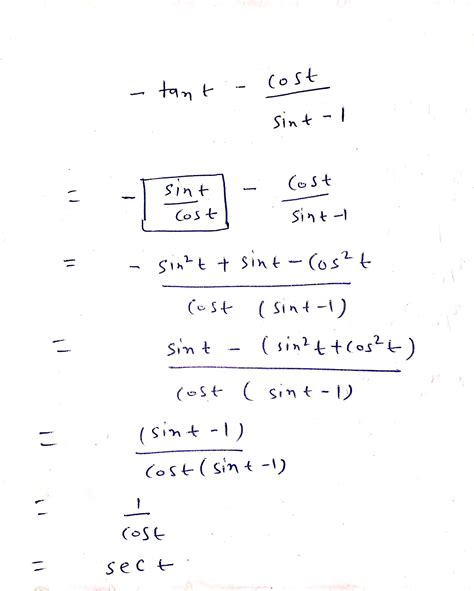 - tan t - cost / sint - 1
= - sint / cost - cost / sint-1
= - sin²t + sint - cos²t / cost (sint-1)
= sint - (sin²t + cos²t) / cost (sint-1)
= (sint-1) / cost(sint-1)
= 1 / cost
= sec t